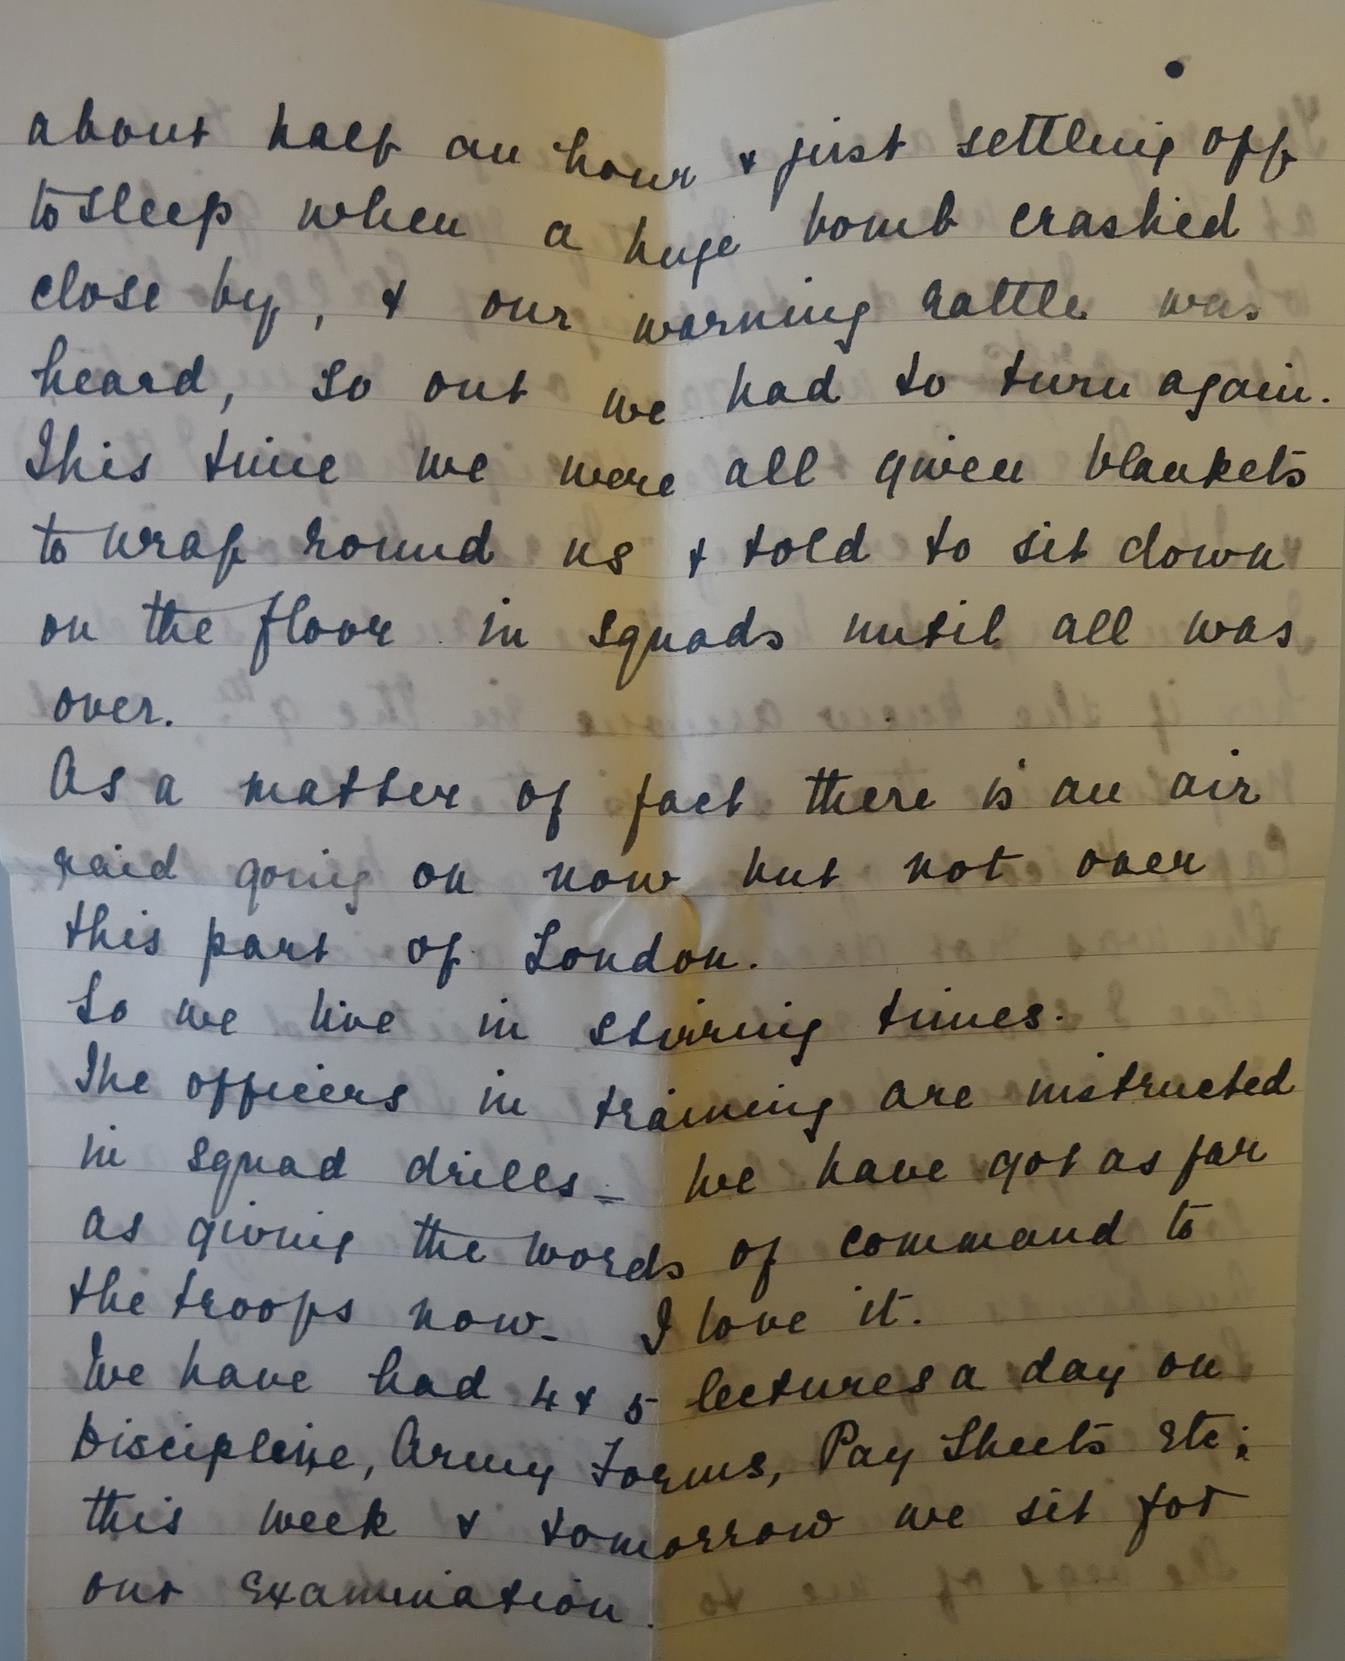 about half an hour & just settling off
to sleep when a huge bomb crashed
close by, & our warning rattle was
heard, so out we had to turn again.
This time we were all given blankets
to wrap round us & told to sit down
on the floor in squads until all was
over.
As a matter of fact there is an air
raid going on now but not over
this part of London.
So we live in stirring times.
The officers in training are instructed
in squad drills - We have got as far
as giving the words of command to
the troops now - I love it.
We have had 4 & 5 lectures a day on
Discipline, Army Forms, Pay Sheets Etc;
this week & tomorrow we sit for
our Examination.